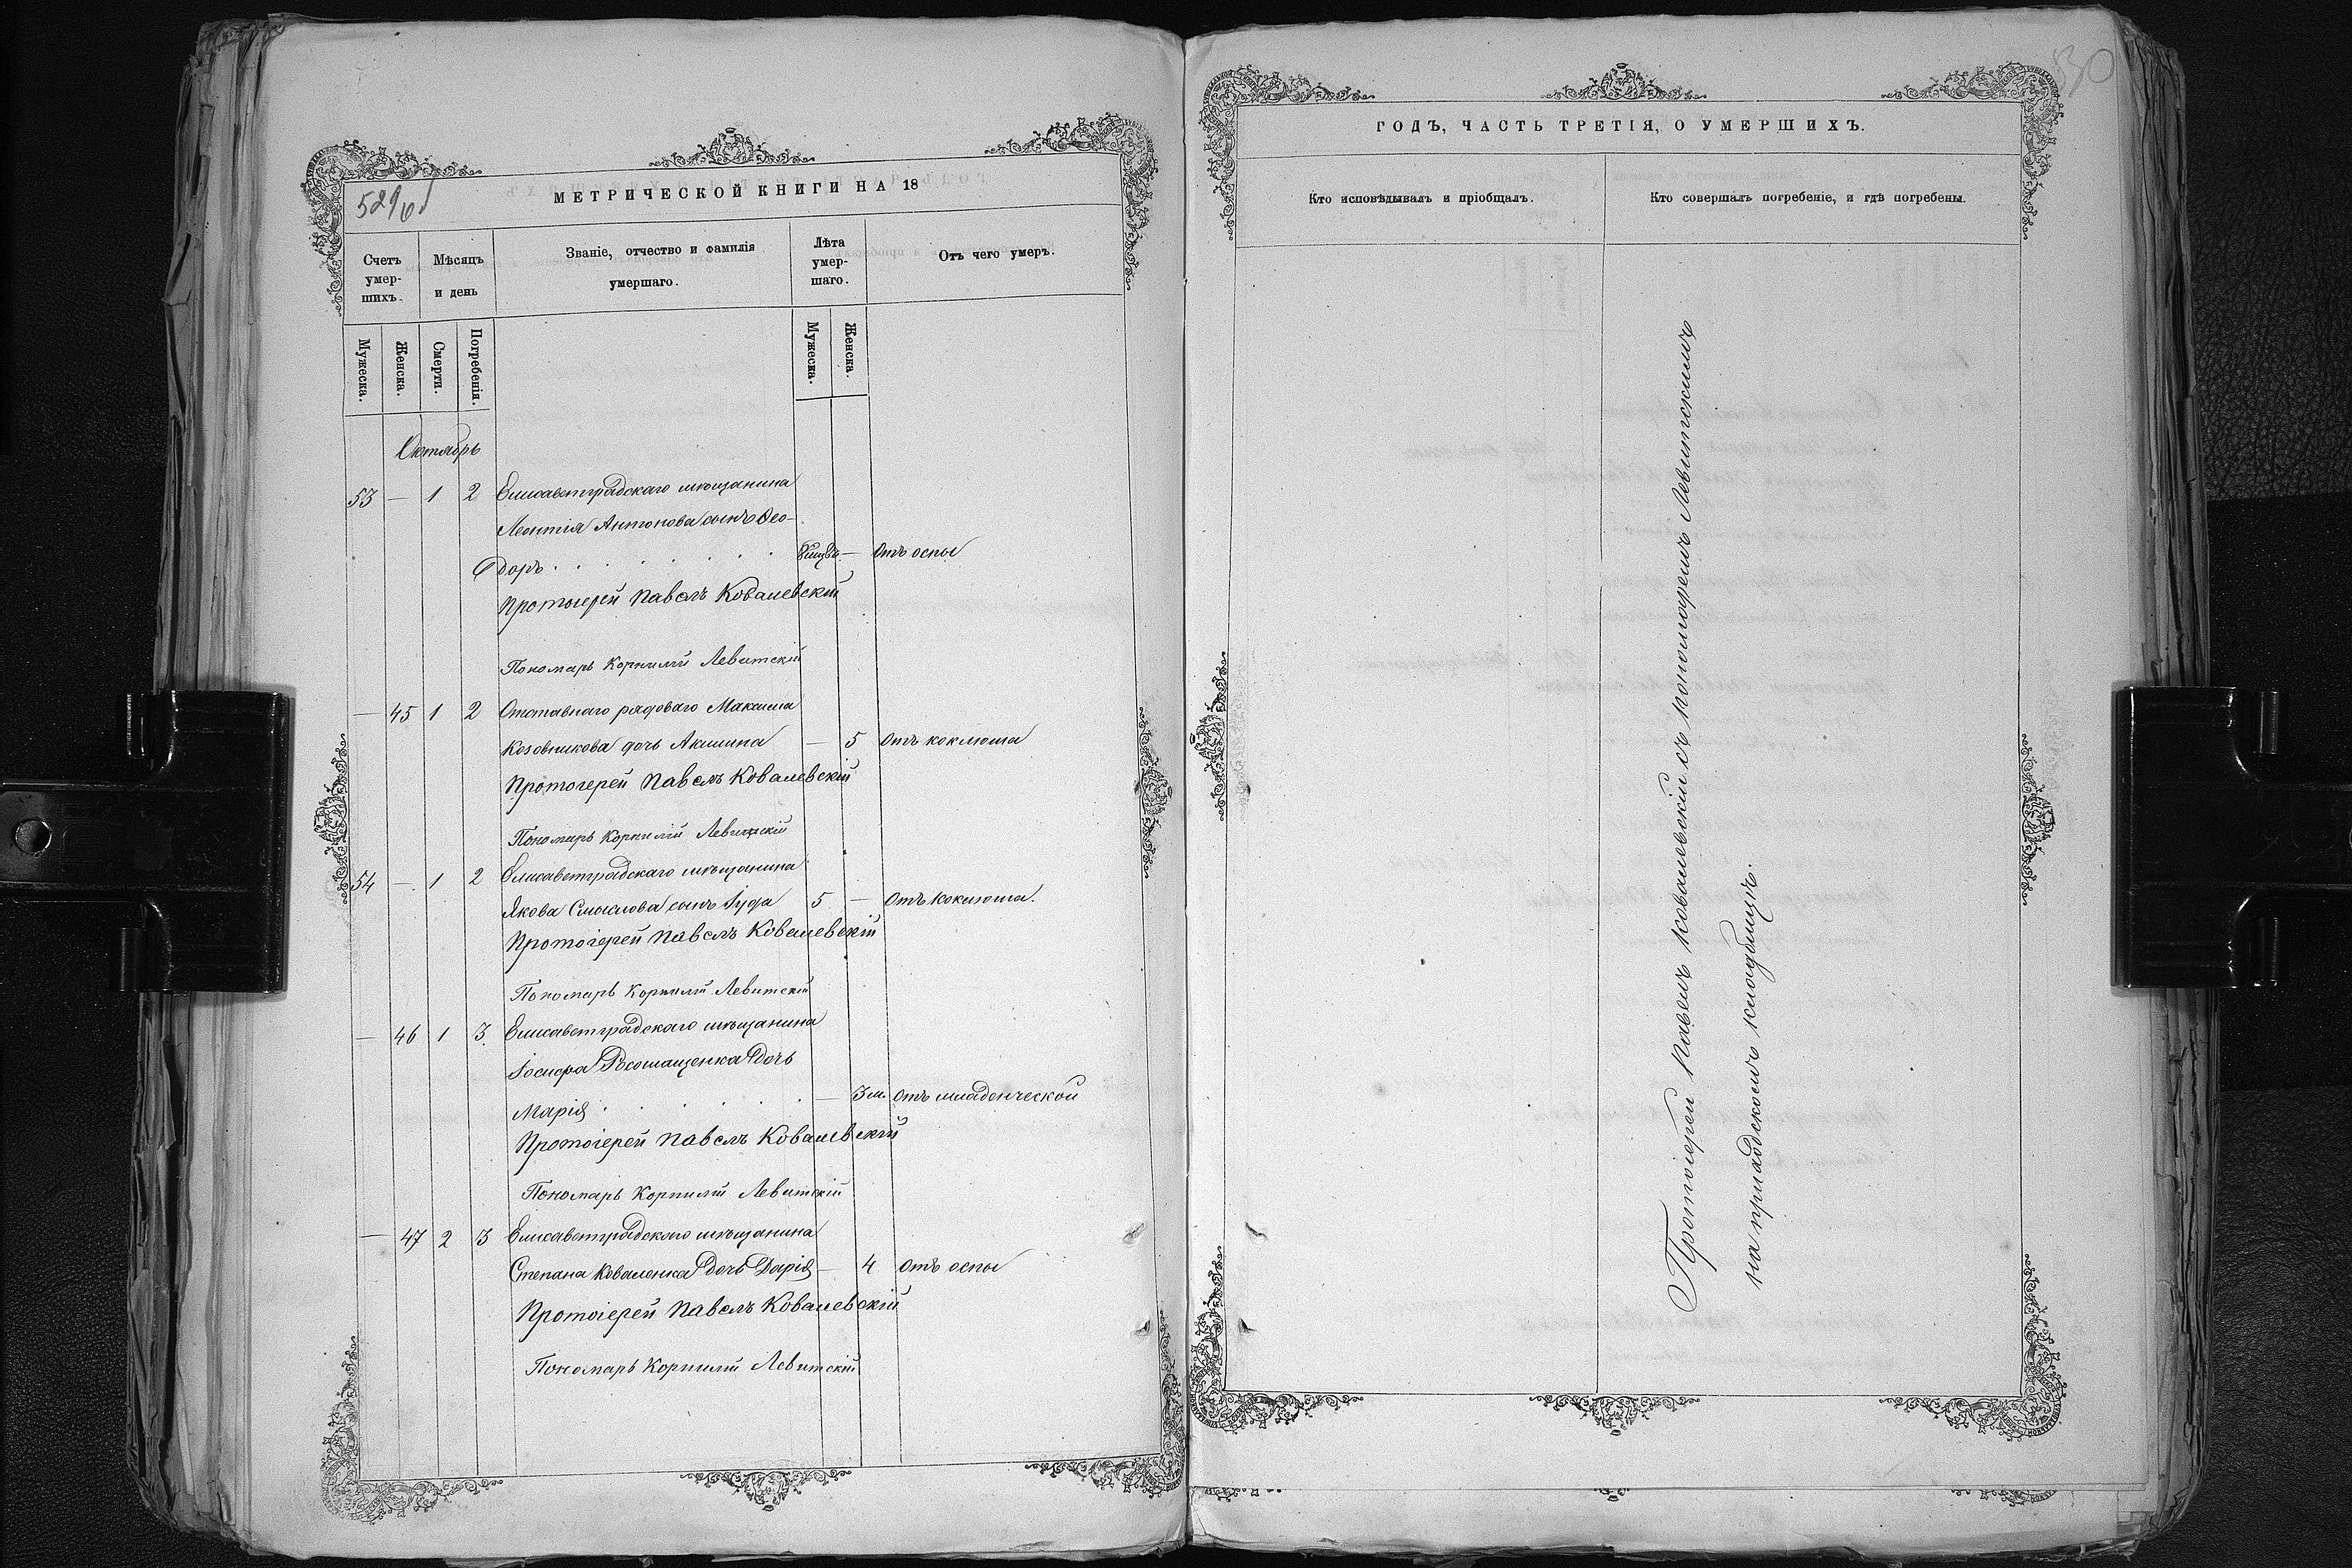 529 об
МЕТРИЧЕСКОЙ КНИГИ НА 18
Счетъ умершихъ.
Мѣсяцъ и день
Званіе, отчество и фамилія умершаго.
Лѣта умершаго.
Отъ чего умеръ.
Мужеска.
Женска.
Смерти.
Погребенія.
Мужеска.
Женска.
Октябрь
53 — 1 2 Елисаветградскаго мѣщанина
Леонтія Антонова сынъ Ѳео-
доръ . . . . . . — Отъ оспы
Протоіерей Павелъ Ковалевскій
Пономарь Корнилій Левитскій
— 45 1 2 Отставнаго рядоваго Максима
Козовникова дочь Акилина — 5 Отъ коклюша
Протоіерей Павелъ Ковалевскій
Пономарь Корнилій Левитскій
54 — 1 2 Елисаветградскаго мѣщанина
Якова Смыслова сынъ Іуда 5 — Отъ коклюша.
Протоіерей Павелъ Ковалевскій
Пономарь Корнилій Левитскій
— 46 1 3. Елисаветградскаго мѣщанина
Росомащенка дочь
Марія . . . . . — 3 м. Отъ младенческой
Протоіерей Павелъ Ковалевскій
Пономарь Корнилій Левитскій
— 47 2 3 Елисаветградскаго мѣщанина
Степана Коваленка дочь Дарія — 4 Отъ оспы
Протоіерей Павелъ Ковалевскій
Пономарь Корнилій Левитскій
ГОДЪ, ЧАСТЬ ТРЕТІЯ, О УМЕРШИХЪ.
Кто исповѣдывалъ и пріобщалъ.
Кто совершалъ погребеніе, и гдѣ погребены.
Протоіерей Павелъ Ковалевскій съ пономаремъ Левитскимъ
на градскомъ кладбищѣ.